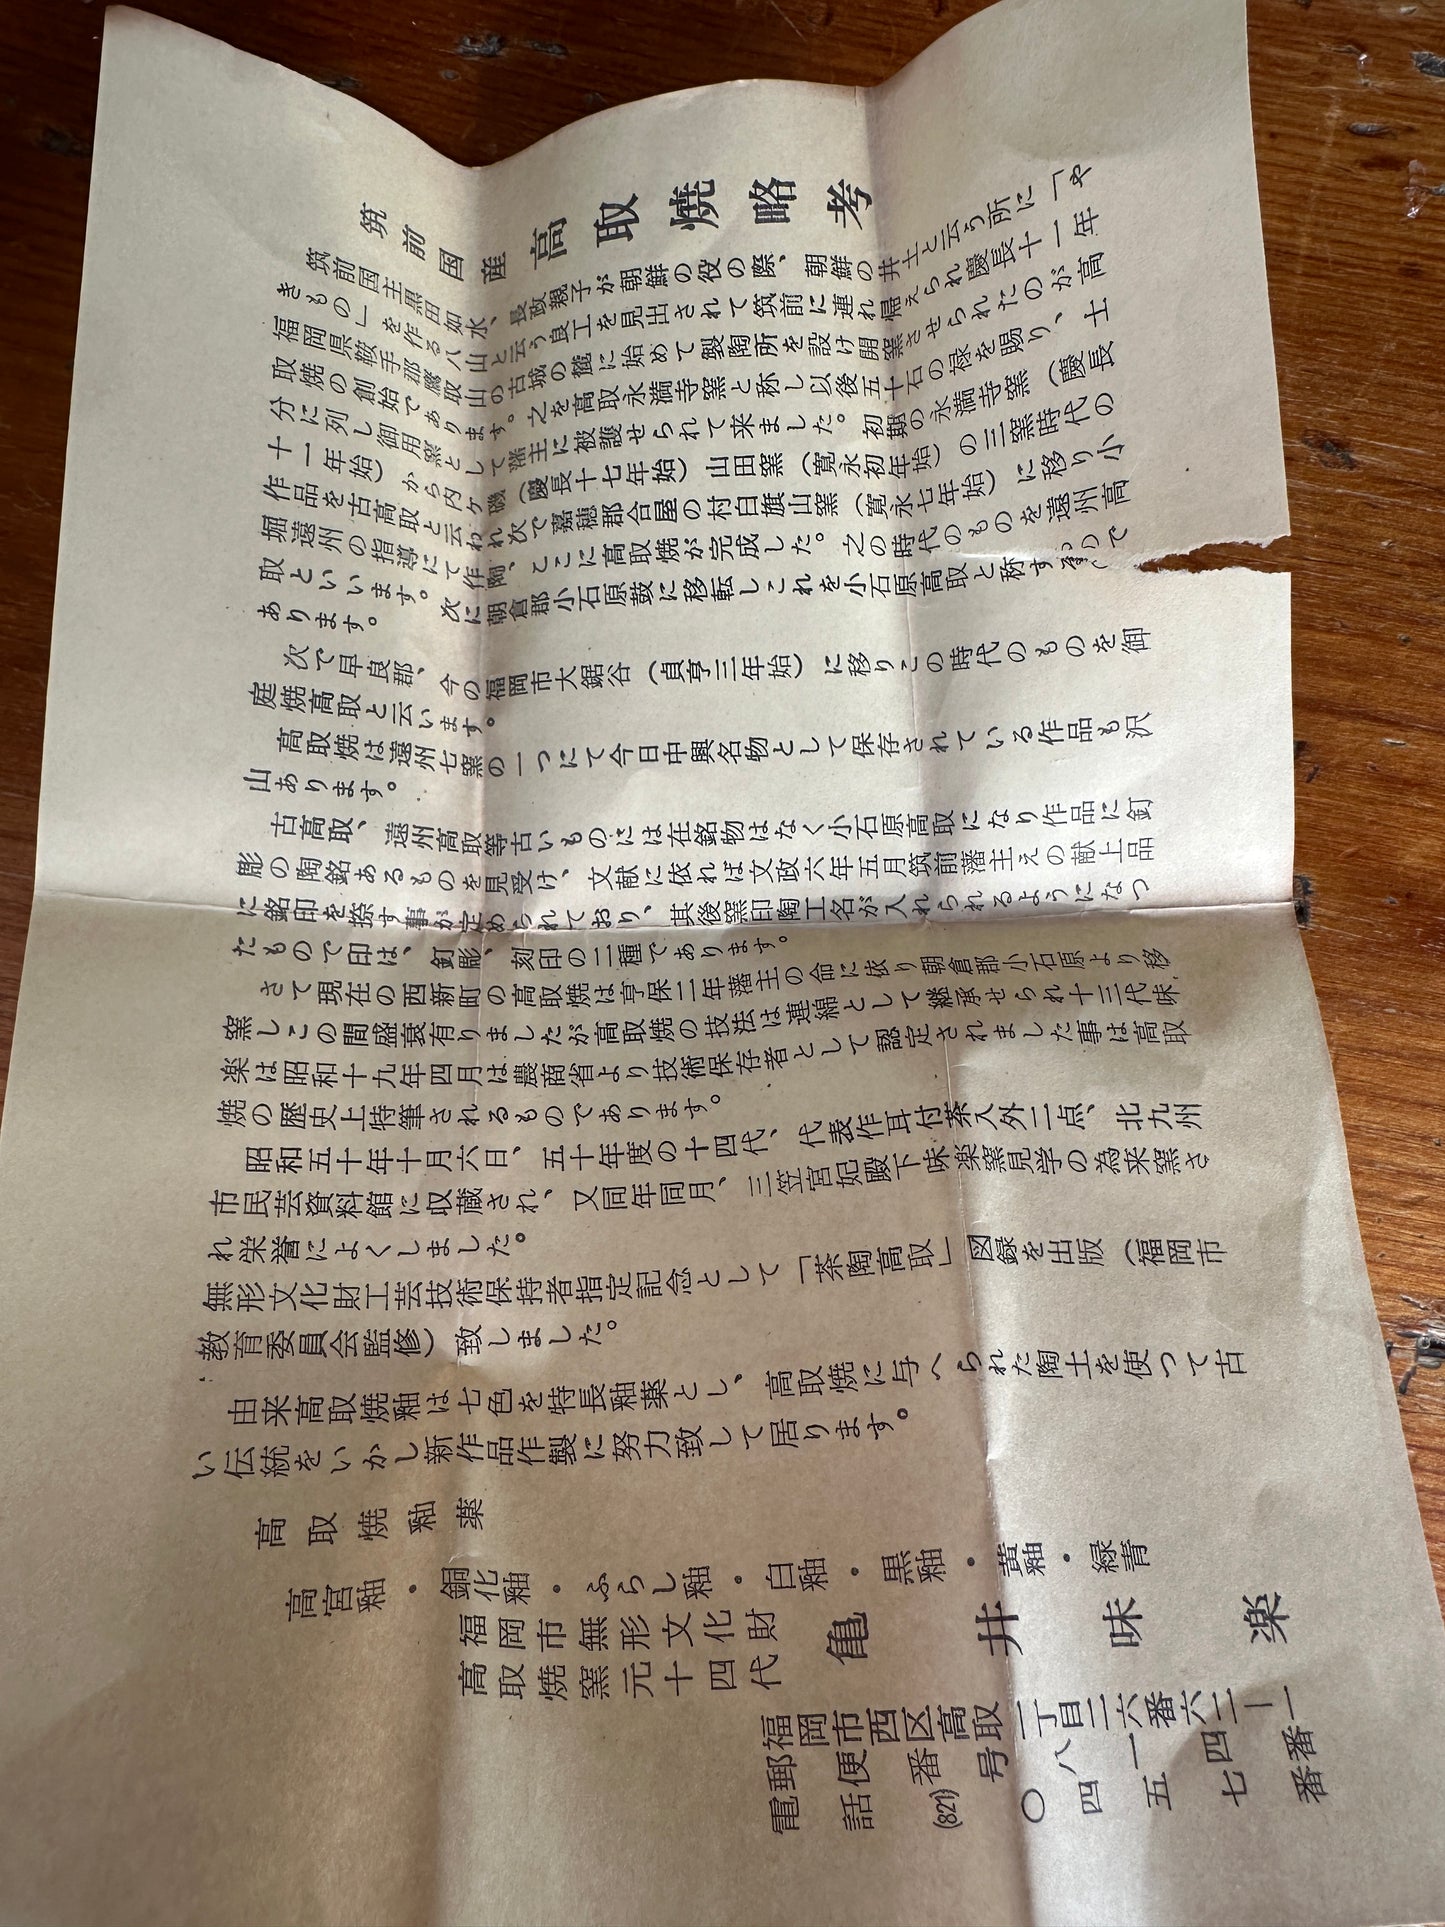 筑前国産高取焼略考
筑前国主黒田如水、長政親子が朝鮮の役の際、朝鮮の井土と云う所に「や
きもの」を作る八山と云う良工を見出されて筑前に連れ帰えられ慶長十一年
福岡県鞍手郡鷹取山の古城の麓に始めて製陶所を設け開窯させられたのが高
取焼の創始であります。之を高取永満寺窯と称し以後五十石の禄を賜り、士
分に列し御用窯として藩主に被護せられて来ました。初期の永満寺窯(慶長
十一年始)から内ケ磯(慶長十七年始)山田窯(寛永初年始)の三窯時代の
作品を古高取と云われ次で嘉穂郡合屋の村白旗山窯(寛永七年始)に移り小
堀遠州の指導にて作陶、ここに高取焼が完成した。之の時代のものを遠州高
取といいます。次に朝倉郡小石原鼓に移転しこれを小石原高取と称するので
あります。
次で早良郡、今の福岡市大鋸谷(貞享三年始)に移りこの時代のものを御
庭焼高取と云います。
高取焼は遠州七窯の一つにて今日中興名物として保存されている作品も沢
山あります。
古高取、遠州高取等古いものには在銘物はなく小石原高取になり作品に釘
彫の陶銘あるものを見受け、文献に依れば文政六年五月筑前藩主えの献上品
に銘印を捺す事が定められており、其後窯印陶工名が入れられるようになつ
たもので印は、釘彫、刻印の二種であります。
さて現在の西新町の高取焼は亨保二年藩主の命に依り朝倉郡小石原より移
窯しこの間盛衰有りましたが高取焼の技法は連綿として継承せられ十三代味
楽は昭和十九年四月は農商省より技術保存者として認定されました事は高取
焼の歴史上特筆されるものであります。
昭和五十年十月六日、五十年度の十四代、代表作耳付茶入外二点、北九州
市民芸資料館に収蔵され、又同年同月、三笠宮妃殿下味楽窯見学の為来窯さ
れ栄誉によくしました。
無形文化財工芸技術保持者指定記念として「茶陶高取」図録を出版(福岡市
教育委員会監修)致しました。
由来高取焼釉は七色を特長釉薬とし、高取焼に与へられた陶土を使つて古
い伝統をいかし新作品作製に努力致して居ります。
高取焼釉薬
高宮釉・銅化釉・ふらし釉・白釉・黒釉・黄釉・緑青
福岡市無形文化財
高取焼窯元十四代
亀井味楽
福岡市西区高取一丁目二六番六二ー一
郵便番号八一四番
電話(821)〇四五七番